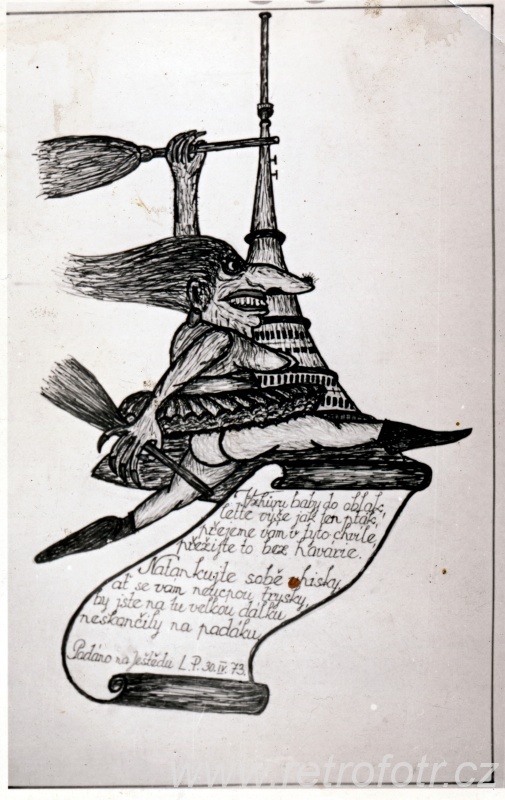 Vzhůru baby do oblak,
leťte výše jak ten pták,
přejeme vám v tyto chvíle,
přežijte to bez havarie.
Natankujte sobě whisky,
ať se vám neucpou trysky,
by jste na tu velkou dálku
neskončily na padáku.
Podáno na Ještědu L.P. 30.IV.73.
www.retrofotr.cz